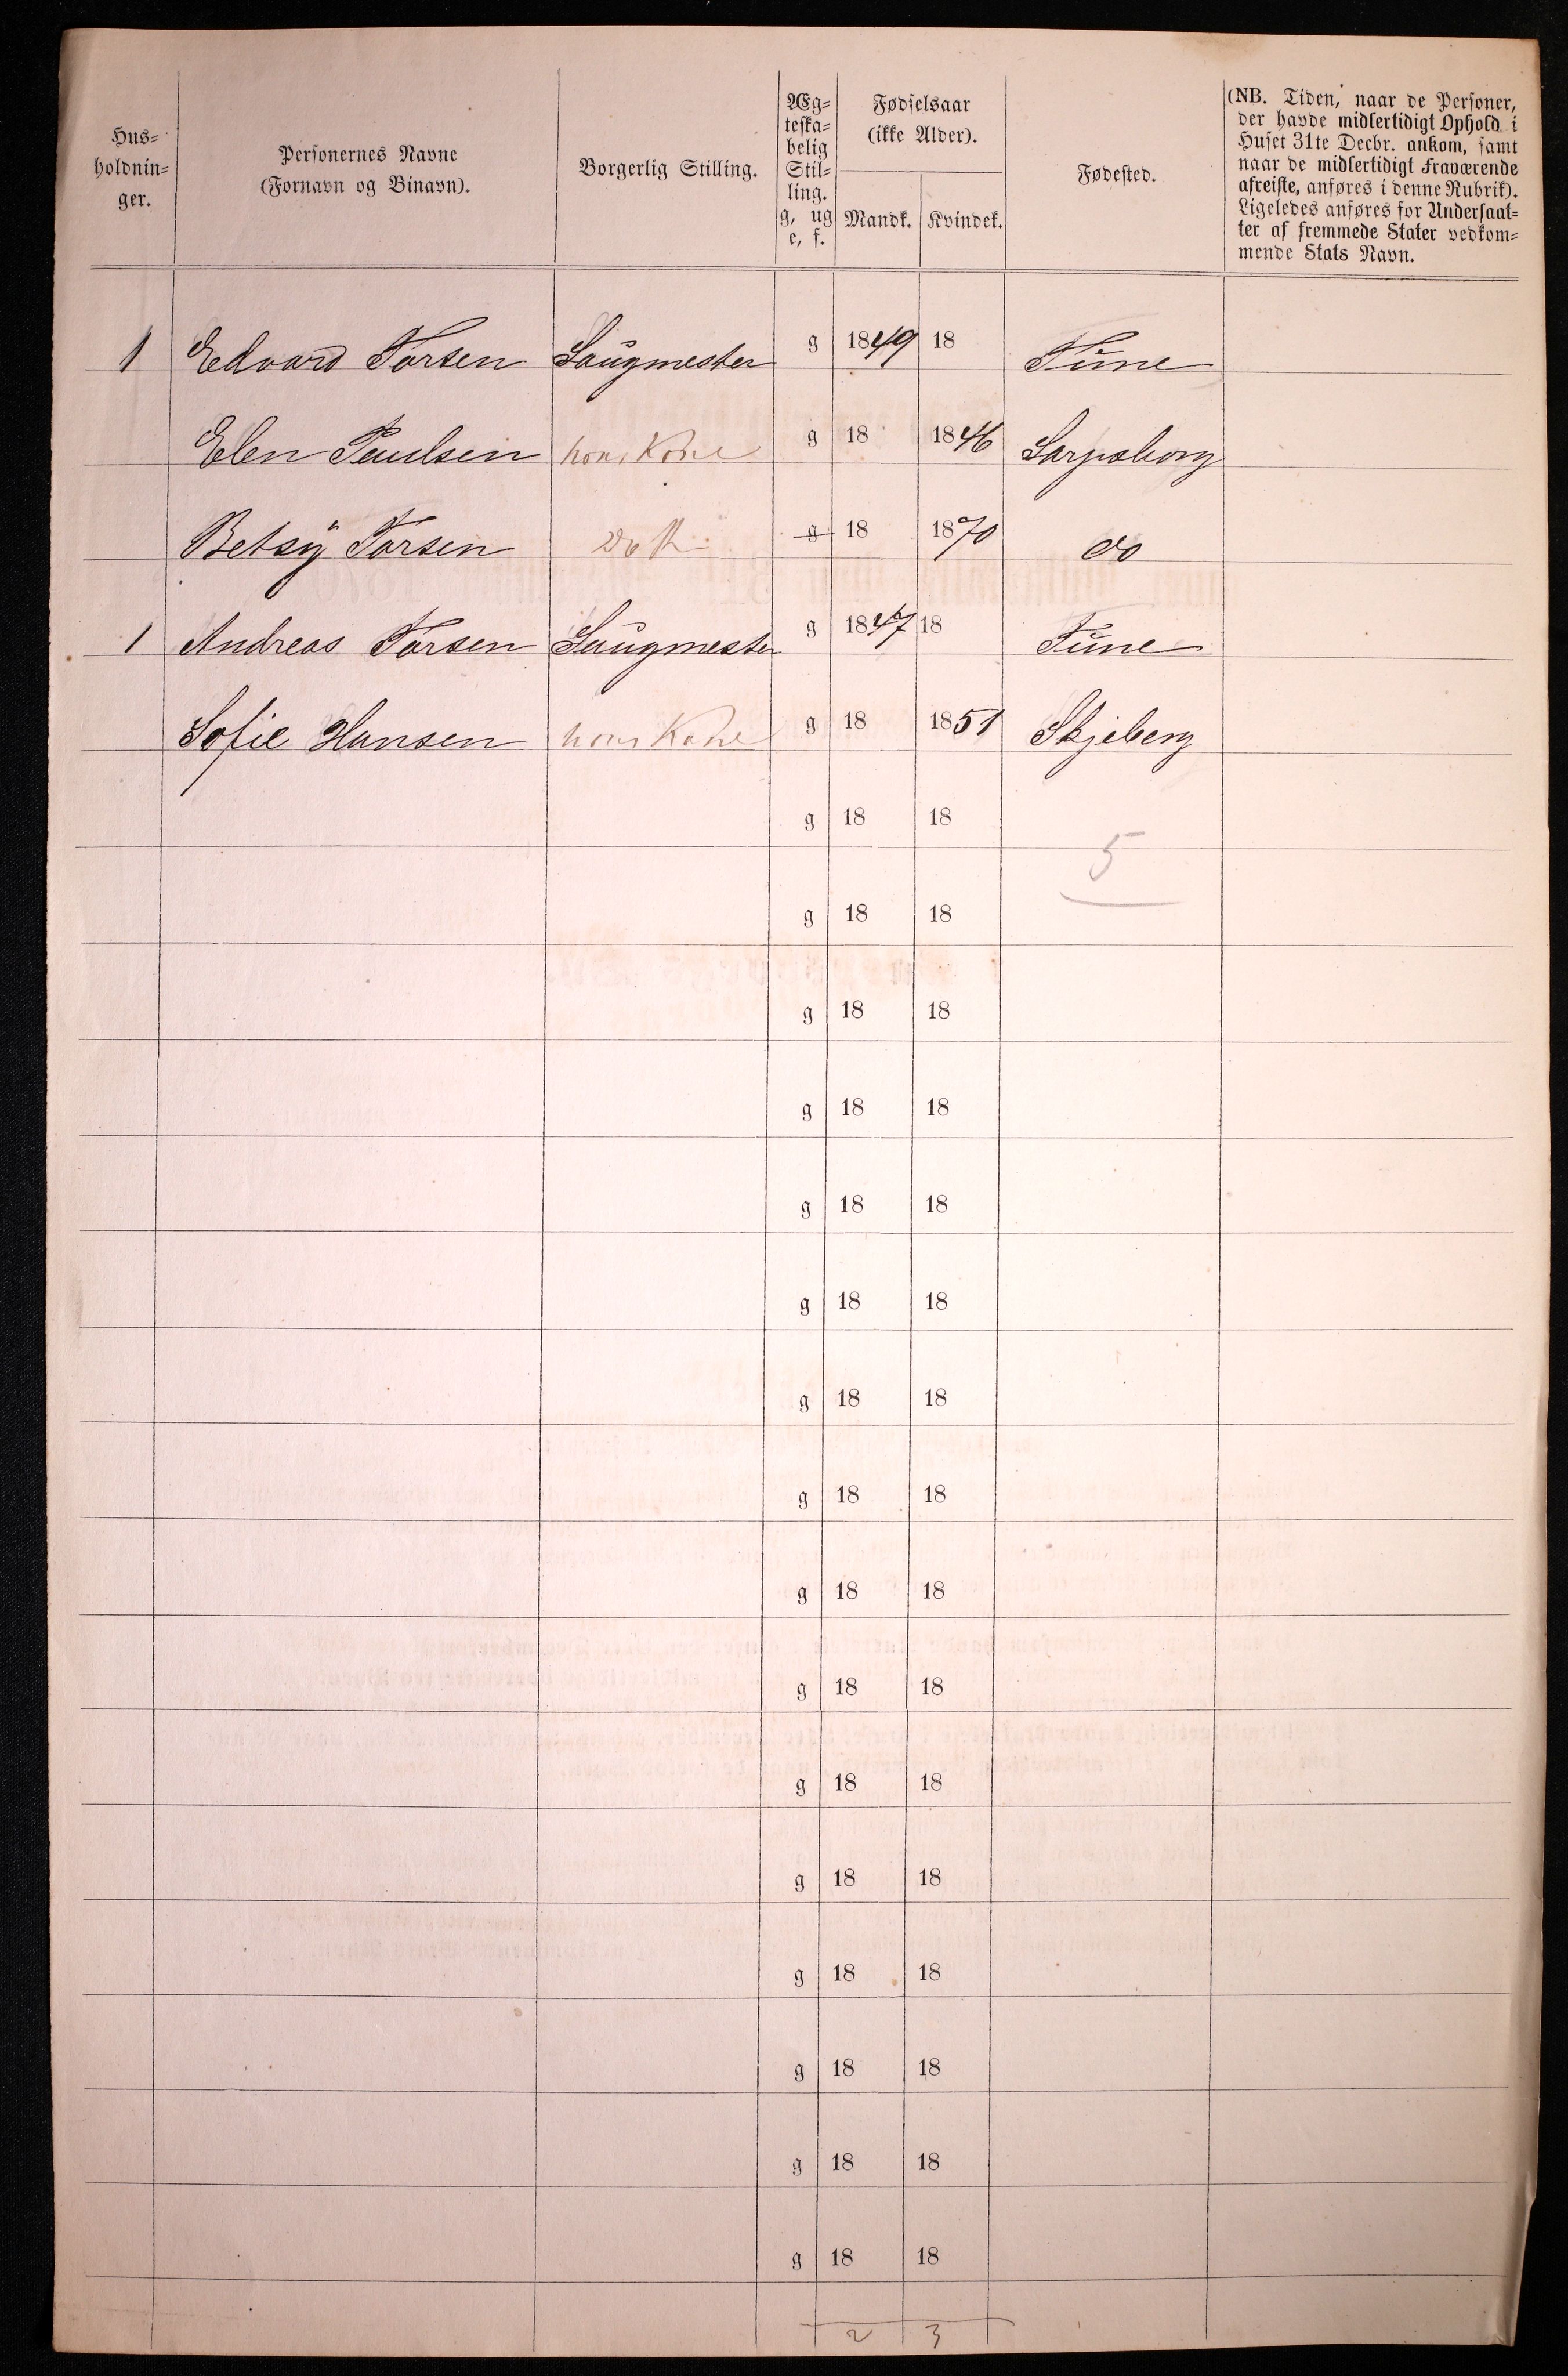 Hus-
holdnin-
ger.
Personernes Navne
(Fornavn og Binavn).
Borgerlig Stilling.
Æg-
teska-
belig
Stil-
ling.
g, ug
e, f.
Fødselsaar
(ikke Alder).
Mandk. Kvindek.
Fødested.
(NB. Tiden, naar de Personer,
der havde midlertidigt Ophold i
Huset 31te Decbr. ankom, samt
naar de midlertidigt Fraværende
afreiste, anføres i denne Rubrik).
Ligeledes anføres for Undersaat-
ter af fremmede Stater vedkom-
mende Stats Navn.
1 Edvard Torsen Saugmester g 1849 18 Tune
Elen Paulsen hans Kone g 18 1846 Sarpsborg
Betsÿ Torsen Datt. g 18 1870 do
1 Andreas Torsen Saugmester g 1847 18 Tune
Sofie Hansen hans Kone g 18 1851 Skjeberg
g 18 18
5
g 18 18
g 18 18
g 18 18
g 18 18
g 18 18
g 18 18
g 18 18
g 18 18
g 18 18
g 18 18
g 18 18
g 18 18
g 18 18
g 18 18
g 18 18
2 3